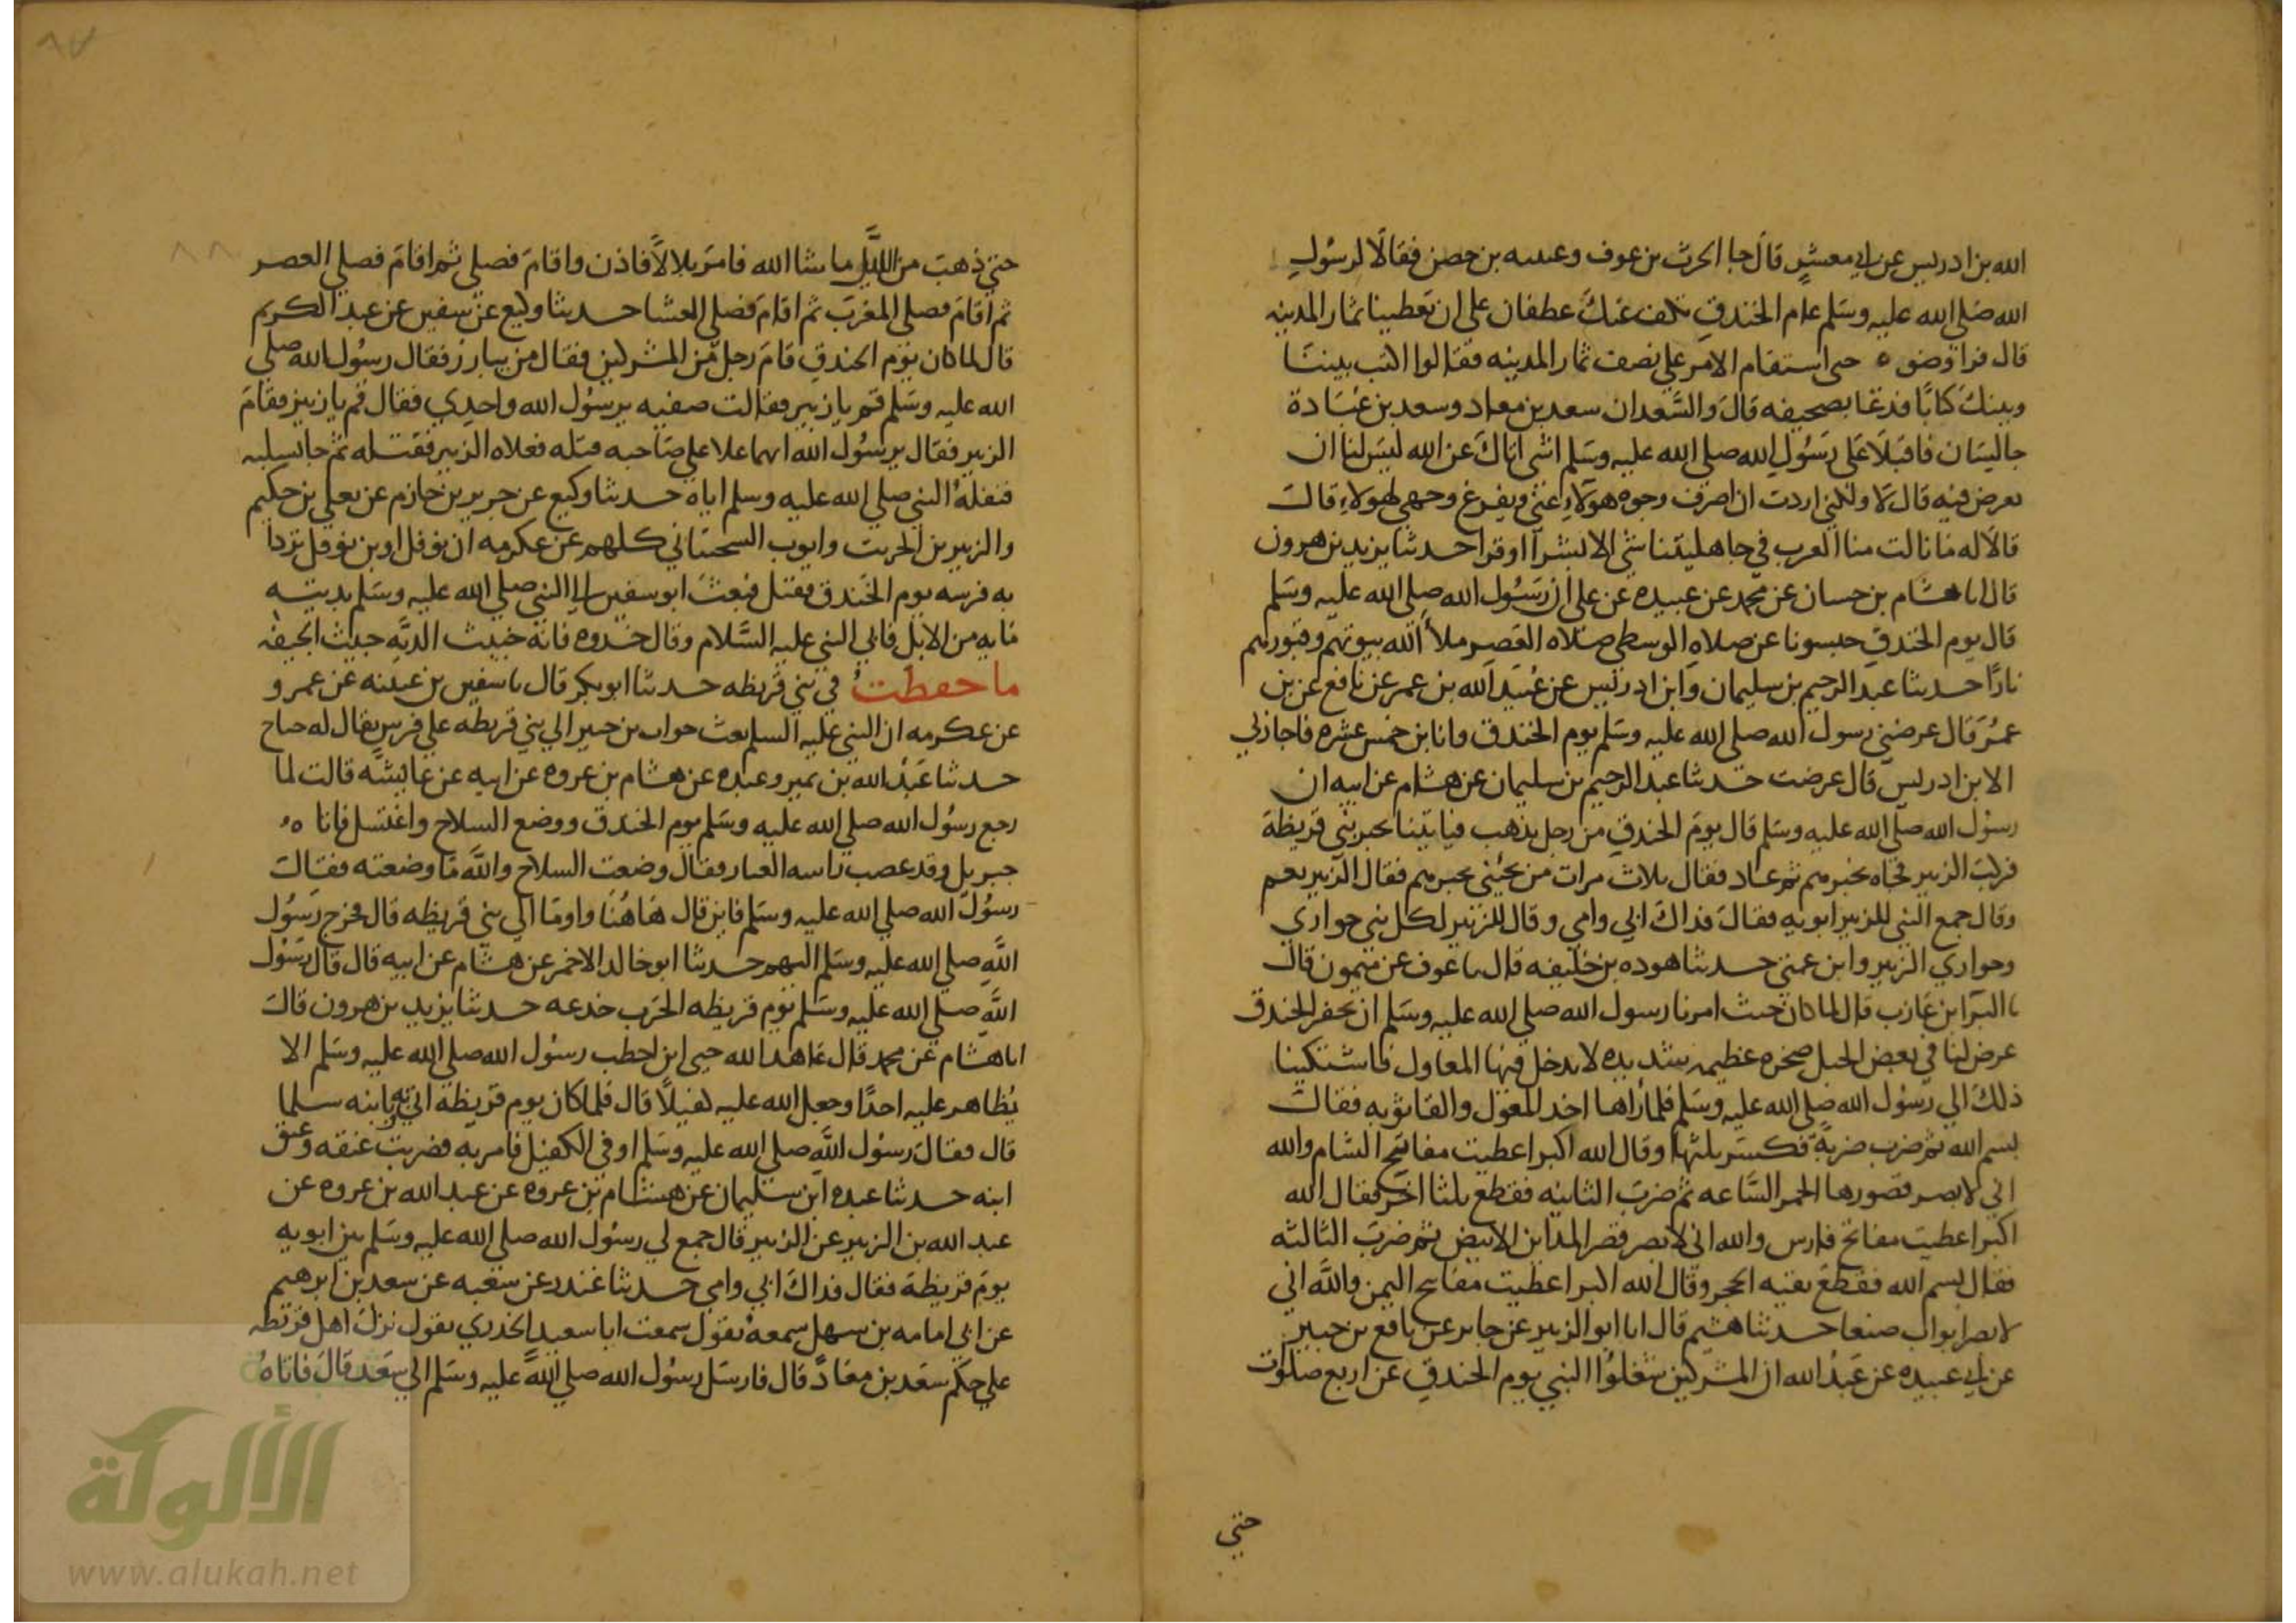 الله بن ادريس عن ابي معشر قال جا الحرث بن عوف وعيينه بن حصن فقالا لرسول
الله صلي الله عليه وسلم عام الخندق نكف عنك غطفان علي ان تعطينا ثمار المدينه
قال فراوضوه حتي استقام الامر علي نصف ثمار المدينه فقالوا اكتب بيننا
وبينك كتابا فدعا بصحيفه قال والسعدان سعد بن معاد وسعد بن عبادة
جاليسان فاقبلا علي رسول الله صلي الله عليه وسلم اشي اتاك عن الله ليس لنا ان
نعرض فيه قال لا ولكني اردت ان اصرف وجوه هولاء عني ويفرغ وجهي لهولاء قال
قالا له ما نالت منا العرب في جاهليتنا شي الا بشرا او قرا حدثنا يزيد بن هرون
قال انا هشام بن حسان عن محمد عن عبيده عن علي ان رسول الله صلي الله عليه وسلم
قال يوم الخندق حبسونا عن صلاه الوسطي صلاه العصر ملا الله بيوتهم وقبورهم
نارا حدثنا عبد الرحيم بن سليمان وابن ادريس عن عبيد الله بن عمر عن نافع عن بن
عمر قال عرضني رسول الله صلي الله عليه وسلم يوم الخندق وانا بن خمس عشره فاجازني
الا بن ادريس قال عرضت حدثنا عبد الرحيم بن سليمان عن هشام عن ابيه ان
رسول الله صلي الله عليه وسلم قال يوم الخندق من رجل يذهب فياتينا بخبر بني قريظة
فركب الزبير فجاه بخبرهم ثم عاد فقال ثلاث مرات من يجيني بخبرهم فقال الزبير نعم
وقال جمع النبي للزبير ابويه فقال فداك ابي وامي وقال للزبير لكل نبي حواري
وحواري الزبير وابن عمتي حدثنا هوده بن خليفه قال نا عوف عن ميمون قال
نا البرا بن عازب قال لما كان حيث امرنا رسول الله صلي الله عليه وسلم ان نحفر الخندق
عرض لنا في بعض الجبل صخره عظيمه شديده لا يدخل فيها المعاول فاشتكينا
ذلك الي رسول الله صلي الله عليه وسلم فلما راها اخد المعول والقا ثوبه فقال
بسم الله ثم ضرب ضربة فكسر ثلثها وقال الله اكبر اعطيت مفاتيح الشام والله
اني لابصر قصورها الحمر الساعه ثم ضرب الثانيه فقطع ثلثا اخر فقال الله
اكبر اعطيت مفاتح فارس والله اني لابصر قصر المداين الابيض ثم ضرب الثالثه
فقال بسم الله فقطع بقيه الحجر وقال الله اكبر اعطيت مفاتح اليمن والله اني
لابصر ابواب صنعا حدثنا هشيم قال انا ابو الزبير عن جابر عن نافع بن جبير
عن ابي عبيده عن عبد الله ان المشركين شغلوا النبي يوم الخندق عن اربع صلوت
حتي
حتي ذهب من الليل ما شا الله فامر بلالا فاذن واقام فصلي ثم اقام فصلي العصر
ثم اقام فصلي المغرب ثم اقام فصلي العشا حدثنا وكيع عن سفين عن عبد الكريم
قال لما كان يوم الخندق قام رجل من المشركين فقال من يبارز فقال رسول الله صلي
الله عليه وسلم قم يا زبير فقالت صفيه يرسول الله واحدي فقال قم يا زبير فقام
الزبير فقال يرسول الله ايهما علا علي صاحبه قتله فعلاه الزبير فقتله ثم جا بسلبه
فنفله النبي صلي الله عليه وسلم اياه حدثنا وكيع عن جرير بن حازم عن يعلي بن حكيم
والزبير بن الخريت وايوب السختياني كلهم عن عكرمه ان نوفل او بن نوفل تردا
به فرسه يوم الخندق فقتل فبعث ابو سفين الي النبي صلي الله عليه وسلم بديته
مايه من الابل فابي النبي عليه السلام وقال خدوه فانه خبيث الديه خبيث الجيفه
ما حفظت في بني قريظه حدثنا ابو بكر قال نا سفين بن عيينه عن عمرو
عن عكرمه ان النبي عليه السلم بعث خوات بن جبير الي بني قريظه علي فرس يقال له جناح
حدثنا عبد الله بن نمير وعبده عن هشام بن عروه عن ابيه عن عايشه قالت لما
رجع رسول الله صلي الله عليه وسلم يوم الخندق ووضع السلاح واغتسل فاتاه
جبريل وقد عصب راسه الغبار فقال وضعت السلاح والله ما وضعته فقال
رسول الله صلي الله عليه وسلم فاين قال هاهنا واوما الي بني قريظه قال فخرج رسول
الله صلي الله عليه وسلم اليهم حدثنا ابو خالد الاحمر عن هشام عن ابيه قال قال رسول
الله صلي الله عليه وسلم يوم قريظه الحرب خدعه حدثنا يزيد بن هرون قال
انا هشام عن محمد قال عاهد الله حيي ابن اخطب رسول الله صلي الله عليه وسلم الا
يظاهر عليه احدا وجعل الله عليه كفيلا قال فلما كان يوم قريظه اتي به وبابنه سلما
قال فقال رسول الله صلي الله عليه وسلم اوفي الكفيل فامر به فضربت عنقه وعنق
ابنه حدثنا عبده ابن سليمان عن هشام بن عروه عن عبد الله بن عروه عن
عبد الله بن الزبير عن الزبير قال جمع لي رسول الله صلي الله عليه وسلم بين ابويه
يوم قريظة فقال فداك ابي وامي حدثنا غندر عن شعبه عن سعد بن ابرهيم
عن ابي امامه بن سهل سمعه يقول سمعت ابا سعيد الخدري يقول نزل اهل قريظه
علي حكم سعد بن معاد قال فارسل رسول الله صلي الله عليه وسلم الي سعد قال فاتاه
الألوكة
www.alukah.net